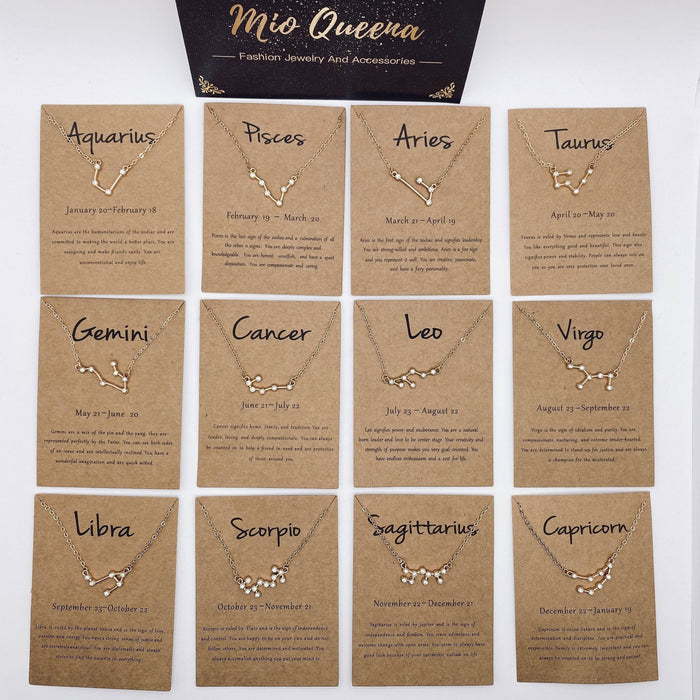 Mio Queena
Fashion Jewelry And Accessories
Aquarius
January 20-February 18
Aquarius are the humanitarians of the zodiac and are
committed to making the world a better place. You are
easygoing and make friends easily. You are
unconventional and enjoy life.
Pisces
February 19 - March 20
Pisces is the last sign of the zodiac and a culmination of all
the other 11 signs. You are deeply complex and
knowledgeable. You are honest, unselfish, and have a quiet
disposition. You are compassionate and caring.
Aries
March 21-April 19
Aries is the first sign of the zodiac and signifies leadership
You are strong-willed and ambitious. Aries is a fire sign
and you represent it well. You are creative, passionate,
and have a fiery personality.
Taurus
April 20-May 20
Taurus is ruled by Venus and represents love and beauty
You like everything good and beautiful. This sign also
signifies power and stability. People can always rely on
you as you are very protective over loved ones.
Gemini
May 21-June 20
Gemini are a mix of the yin and the yang, they are
represented perfectly by the Twins. You can see both sides
of an issue and are intellectually inclined. You have a
wonderful imagination and are quick witted.
Cancer
June 21-July 22
Cancer signifies home, family, and tradition. You are
tender, loving and deeply compassionate. You can always
be counted on to help a friend in need and are protective
of those around you.
Leo
July 23 - August 22
Leo signifies power and exuberance. You are a natural
born leader and love to be center stage. Your creativity and
strength of purpose makes you very goal oriented. You
have endless enthusiasm and a zest for life.
Virgo
August 23-September 22
Virgo is the sign of idealism and purity. You are
compassionate, nurturing, and extreme tender-hearted.
You are determined to stand up for justice and are always
a champion for the mistreated.
Libra
September 23-October 22
Libra is ruled by the planet Venus and is the sign of love,
passion and energy You have a strong sense of justice and
are extremely analytical. You are diplomatic and always
strive to find the balance in everything.
Scorpio
October 23-November 21
Scorpio is ruled by Pluto and is the sign of independence
and control. You are happy to be on your own and do not
follow others. You are determined and motivated. You
always accomplish anything you put your mind to.
Sagittarius
November 22-December 21
Sagittarius is ruled by Jupiter and is the sign of
independence and freedom. You crave adventure and
welcome change with open arms. You seem to always have
good luck because of your optimistic outlook on life.
Capricorn
December 22-January 19
Capricorn is ruled by Saturn and is the sign of
determination and discipline. You are practical and
responsible. Family is extremely important and you can
always be counted on to be strong and sensible.